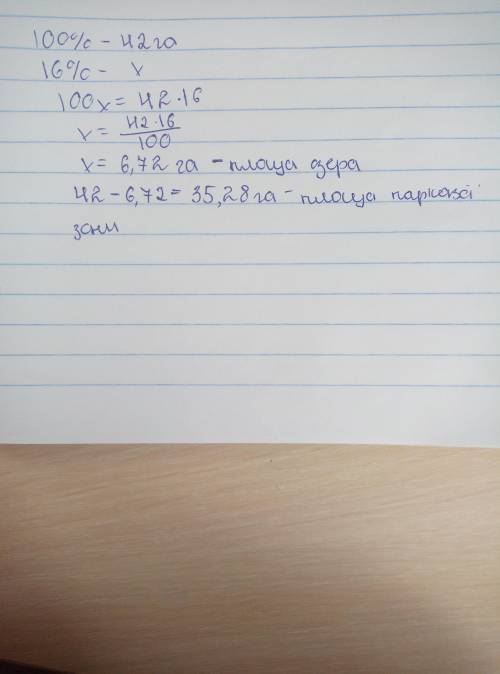 100% - 42 га
16% - x
100x = 42 · 16
x = 42 · 16 / 100
x = 6,72 га - площа озера
42 - 6,72 = 35,28 га - площа паркової
зони